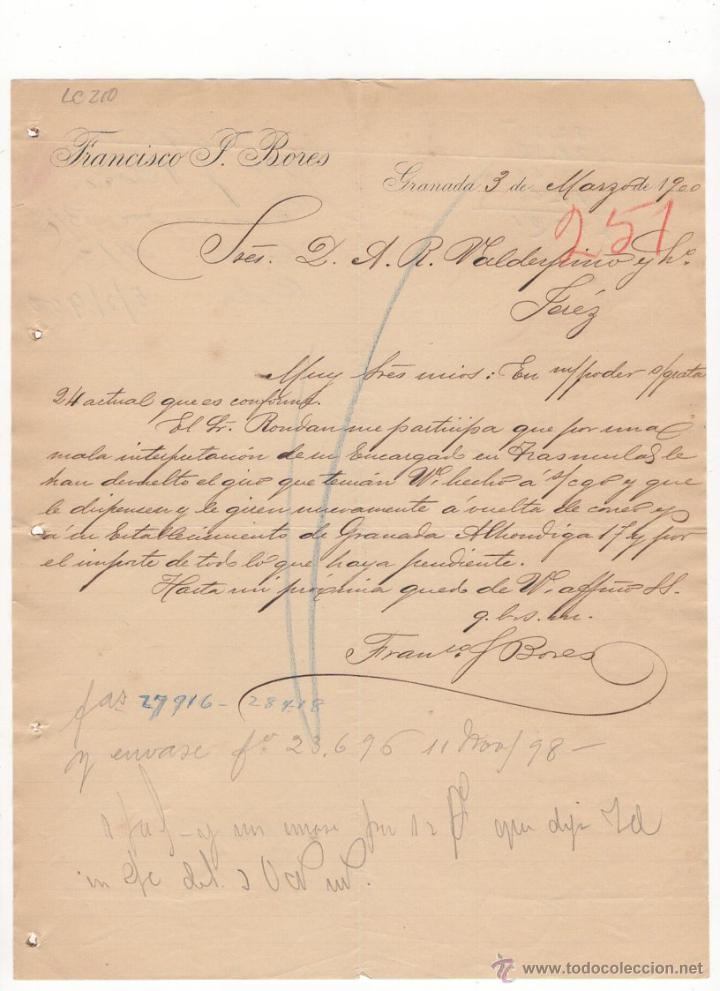 LC 210
Francisco J. Bores
Granada 3 de Marzo de 1900
251
Sres. D. A. R. Valdespino y Hº
Jeréz
Muy Sres mios: En m/poder s/grata
24 actual que es conforme.
El Sr. Rondan me participa que por una
mala interpretación de su Encargado en le
han devuelto el giro que tenían Vs hecho á s/cgo y que
le dispensen y le giren nuevamente á vuelta de correo y
á su Establecimiento de Granada Alhondiga 17 y por
el importe de todo lo que haya pendiente.
Hasta mi próxima quedo de Vs. affmo SS.
q.b.s.m.
Franco J Bores
fas 27916 - 28418
y envase fº 23.696 11 Nov/98 -
y un envase por que dije
del 2 Oct
www.todocoleccion.net